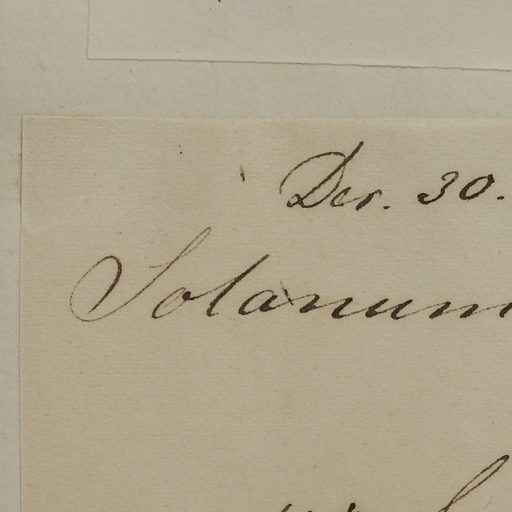 Dec. 30.
Solanum